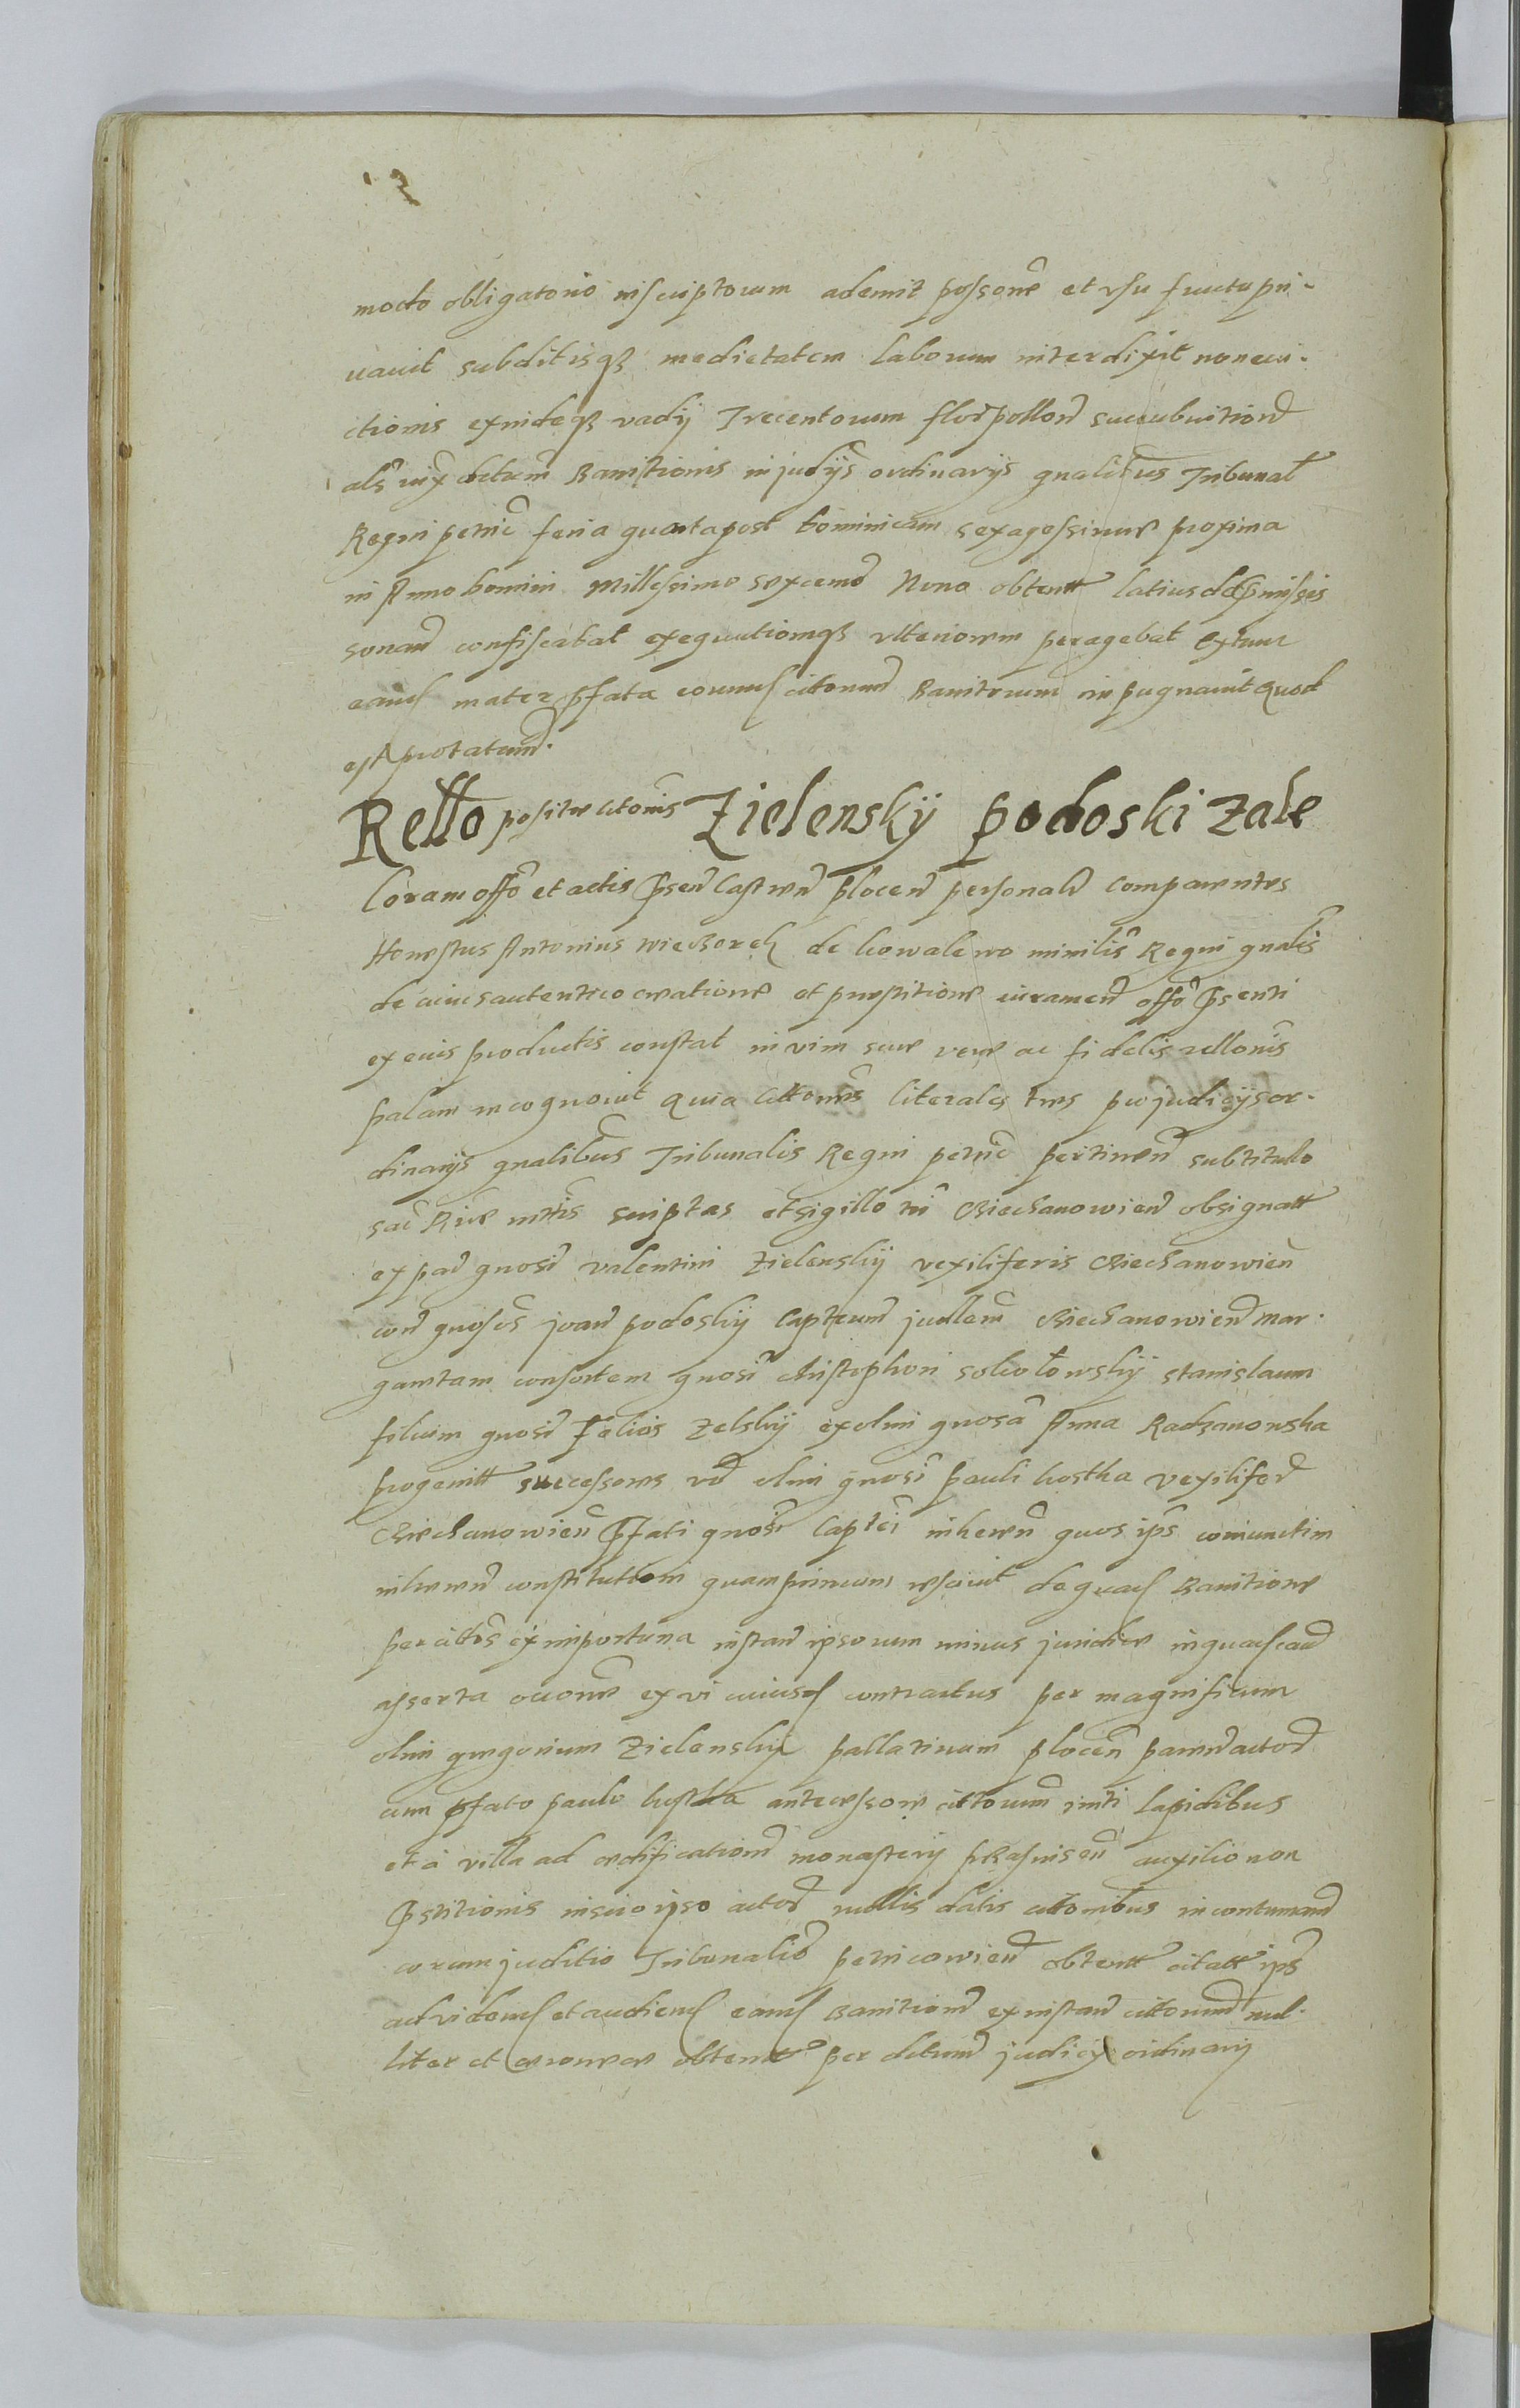 modo obligatorio inscriptorum ademit possone et vsu fructu pri-
uauit subditisq medietatem laborum interdixit non eui-
ctionis exindeq vadij Trecentorum flor pollon succubuition
als iux dctum Banitionis in judijs ordinarijs gnalibus Tribunal
Regni petric feria quarta post dominicam sexagessimae proxima
in Anno domini Millesimo sexcen Nono obtent latius de pmissis
sonan confiscabat exequutiomq vlteriorem peragebat
mater pfata cittorum Banitorum inpugnauit Quod
est protatum.
Rello positae citonis Zielenskÿ podoski zale
Coram offo et actis psen Castren plocen personalr comparentes
Honestus Antonius wieczorek de kowalewo minilis Regni gnalis
de cuius autentico creatione et prestitione iuramen offo psenti
ex eius productis constat in vim suae verae ac fidelis rellonis
palam recognouit Quia cittones literales tres pro judicijs or-
dinarijs gnalibus Tribunalis Regni petric pertinen sub titulo
sac Riae mttis scriptas et sigillo tri Ciechanowien obsignatt
ex par gnosi valentini Zielenskÿ vexiliferis Ciechanowien
con gnosos joan podoskÿ Capteum jullem Ciechanowien mar-
garetam consortem gnosi christophori sokołowskÿ stanislaum
filium gnosi Felicis Zelskÿ ex olim gnosa Anna Radzanowska
progenitt successores vo olim gnosi pauli kostka vexilifer
Ciechanowien pfati gnosi Captei inheren quos ips coniunctim
inheren constitutioni quamprimum resciuit de quad Banitione
per citos ex importuna instan ipsorum minus juridice in quadcan
asserta occone ex vi cuiusd contractus per magnificum
olim gregorium Zielenskÿ pallatinum plocen actor
cum pfato paulo kostka antecessore cittorum initi lapidibus
et à villa ad aedificationem monasterij pRasnisen auxilio non
pstitionis inscio ipso actor nullis datis citonibus in contuman
coram juditio Tribunalis petricowien obtent citatt ips
ad viden et audien eand Banitionem ex instan cittorum nul-
liter et erronee obtent per dctum judicij ordinarij